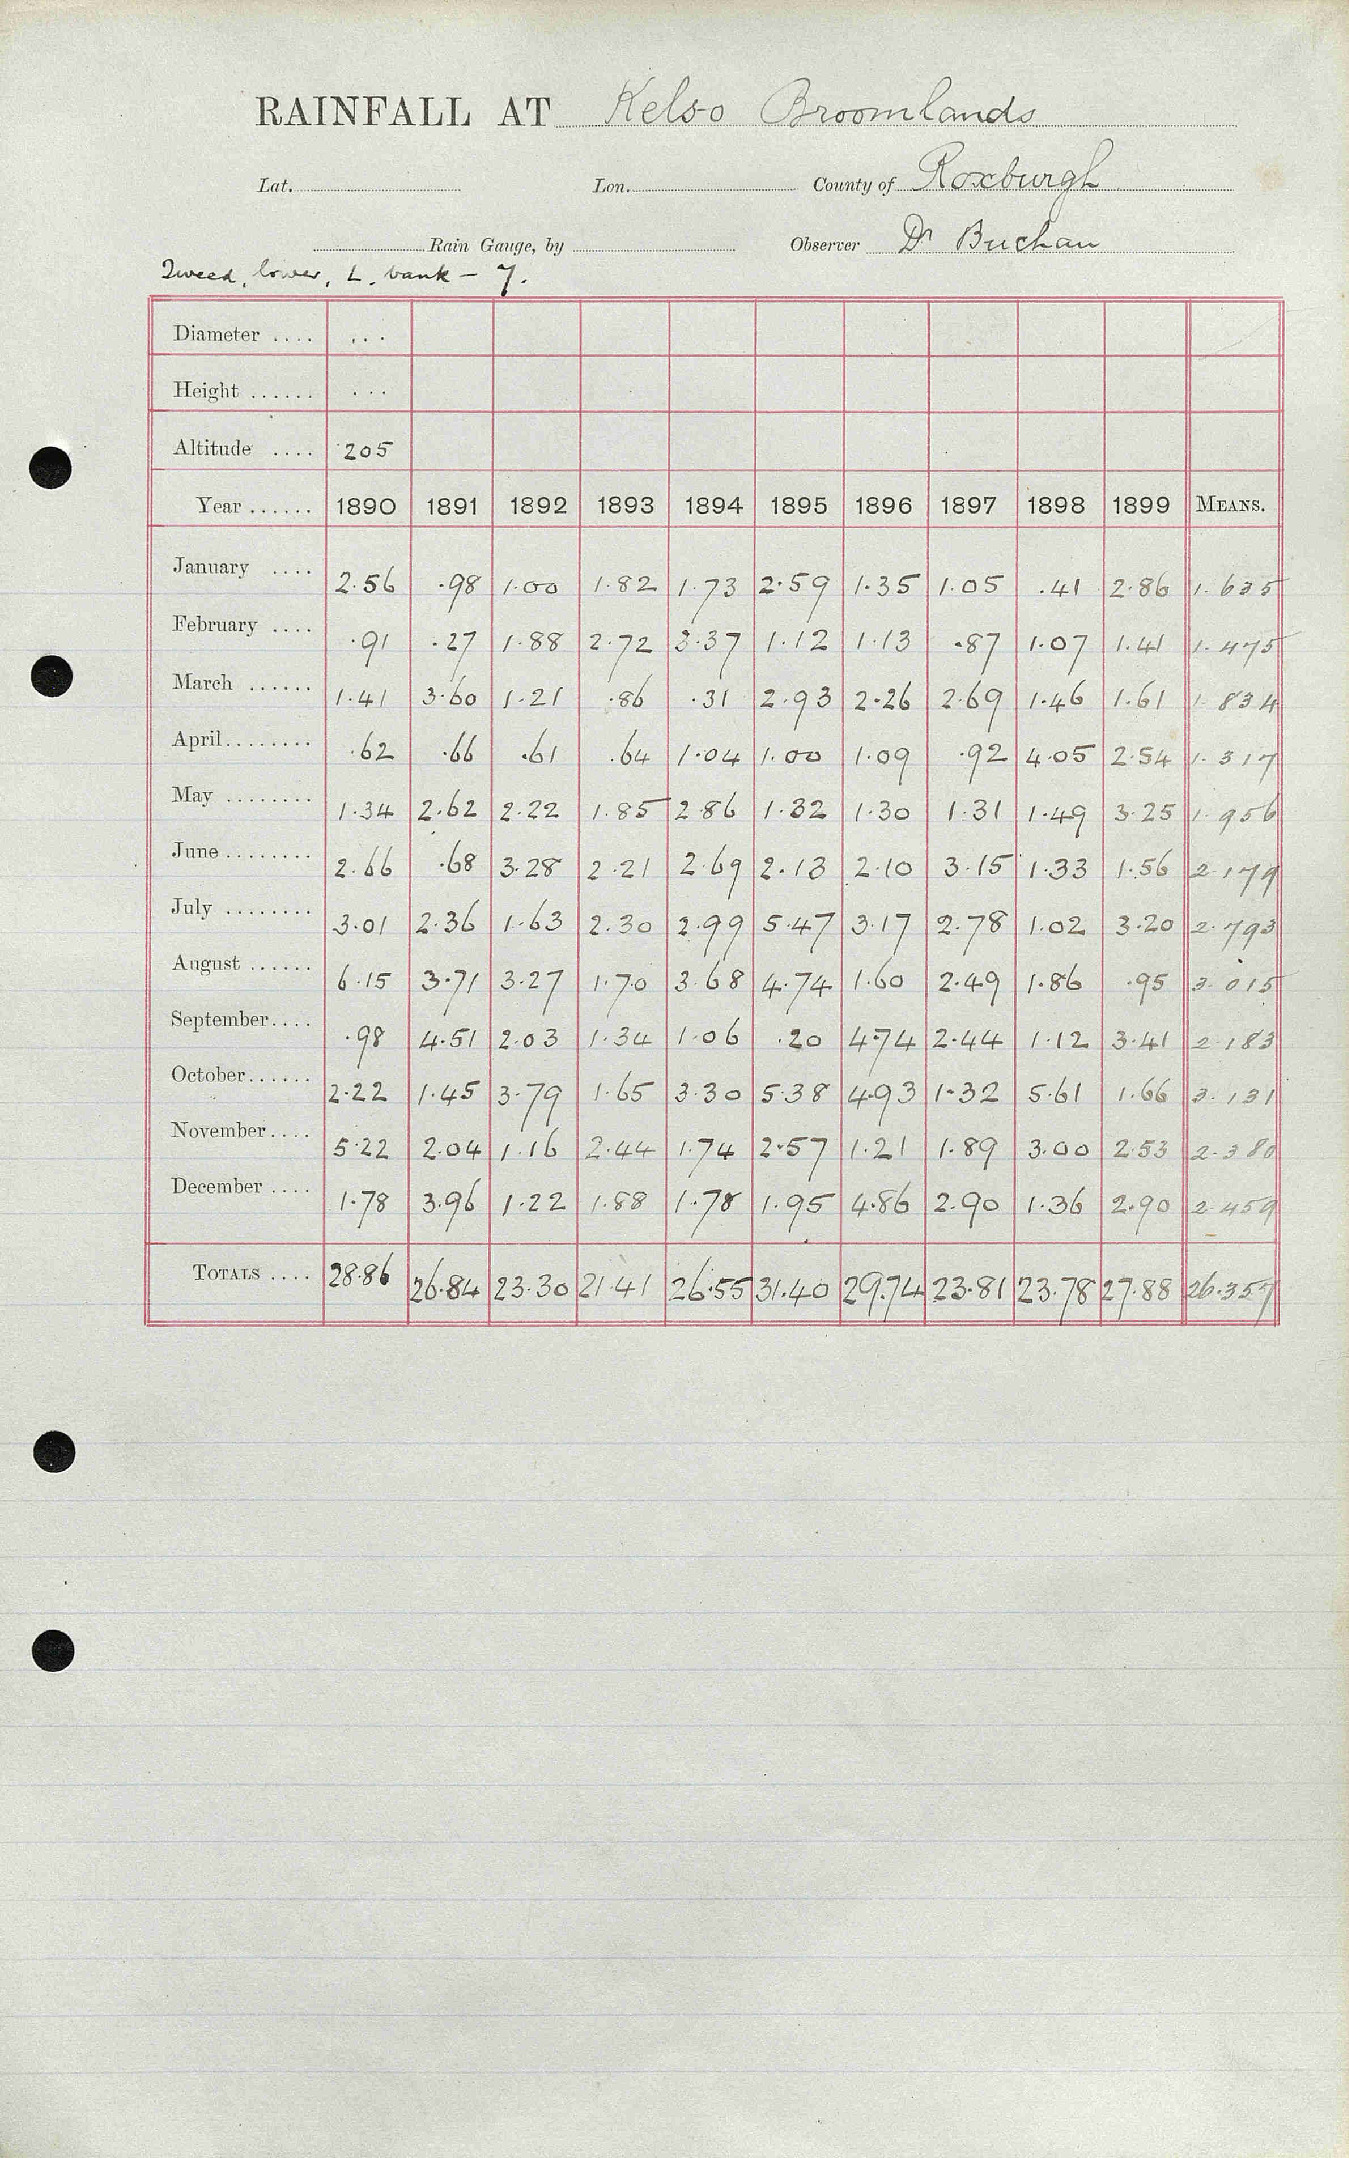 RAINFALL AT Kelso Broomlands
Lat. Lon. County of Roxburgh
Rain Gauge, by Observer Dr Buchan
Tweed, lower, L. bank - 7.
Diameter .... ...
Height ...... ...
Altitude .... 205
Year ...... 1890 1891 1892 1893 1894 1895 1896 1897 1898 1899 MEANS.
January .... 2.56 .98 1.00 1.82 1.73 2.59 1.35 1.05 .41 2.86 1.635
February .... .91 .27 1.88 2.72 3.37 1.12 1.13 .87 1.07 1.41 1.475
March ...... 1.41 3.60 1.21 .86 .31 2.93 2.26 2.69 1.46 1.61 1.834
April........ .62 .66 .61 .64 1.04 1.00 1.09 .92 4.05 2.54 1.317
May ........ 1.34 2.62 2.22 1.85 2.86 1.32 1.30 1.31 1.49 3.25 1.956
June ........ 2.66 .68 3.28 2.21 2.69 2.13 2.10 3.15 1.33 1.56 2.179
July ........ 3.01 2.36 1.63 2.30 2.99 5.47 3.17 2.78 1.02 3.20 2.793
August ...... 6.15 3.71 3.27 1.70 3.68 4.74 1.60 2.49 1.86 .95 3.015
September.... .98 4.51 2.03 1.34 1.06 .20 4.74 2.44 1.12 3.41 2.183
October...... 2.22 1.45 3.79 1.65 3.30 5.38 4.93 1.32 5.61 1.66 3.131
November.... 5.22 2.04 1.16 2.44 1.74 2.57 1.21 1.89 3.00 2.53 2.380
December .... 1.78 3.96 1.22 1.88 1.78 1.95 4.86 2.90 1.36 2.90 2.459
TOTALS .... 28.86 26.84 23.30 21.41 26.55 31.40 29.74 23.81 23.78 27.88 26.357